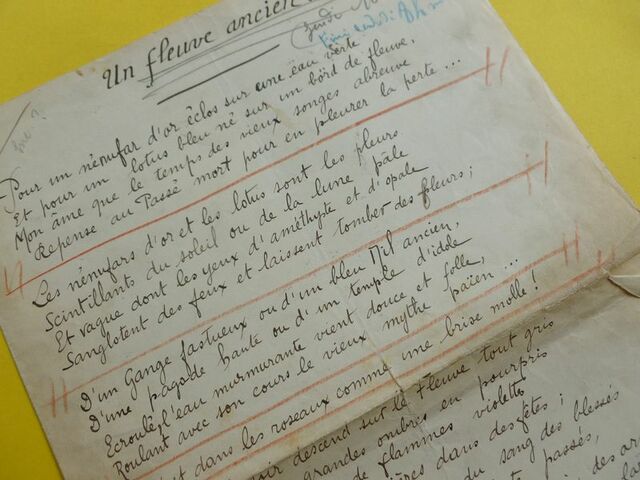 Un fleuve ancien
Jeudi
Pour un nénufar d'or éclos sur une eau verte
Et pour un lotus bleu né sur un bord de fleuve,
Mon âme que le temps des vieux songes abreuve
Repense au Passé mort pour en pleurer la perte ...
Les nénufars d'or et les lotus sont les pleurs
Scintillants du soleil ou de la lune pâle
Et vague dont les yeux d'améthyte et d'opale
Sanglotent des feux et laissent tomber des fleurs ;
D'un Gange fastueux ou d'un bleu Nil ancien,
D'une pagode haute ou d'un temple d'idole
Ecroulé, l'eau murmurante vient douce et folle,
Roulant avec son cours le vieux mythe païen ...
dans les roseaux comme une brise molle !
descend sur le Fleuve tout gris
grandes ombres en pourpris
de flammes violettes
dans des fêtes ;
du sang des blessés
passés,